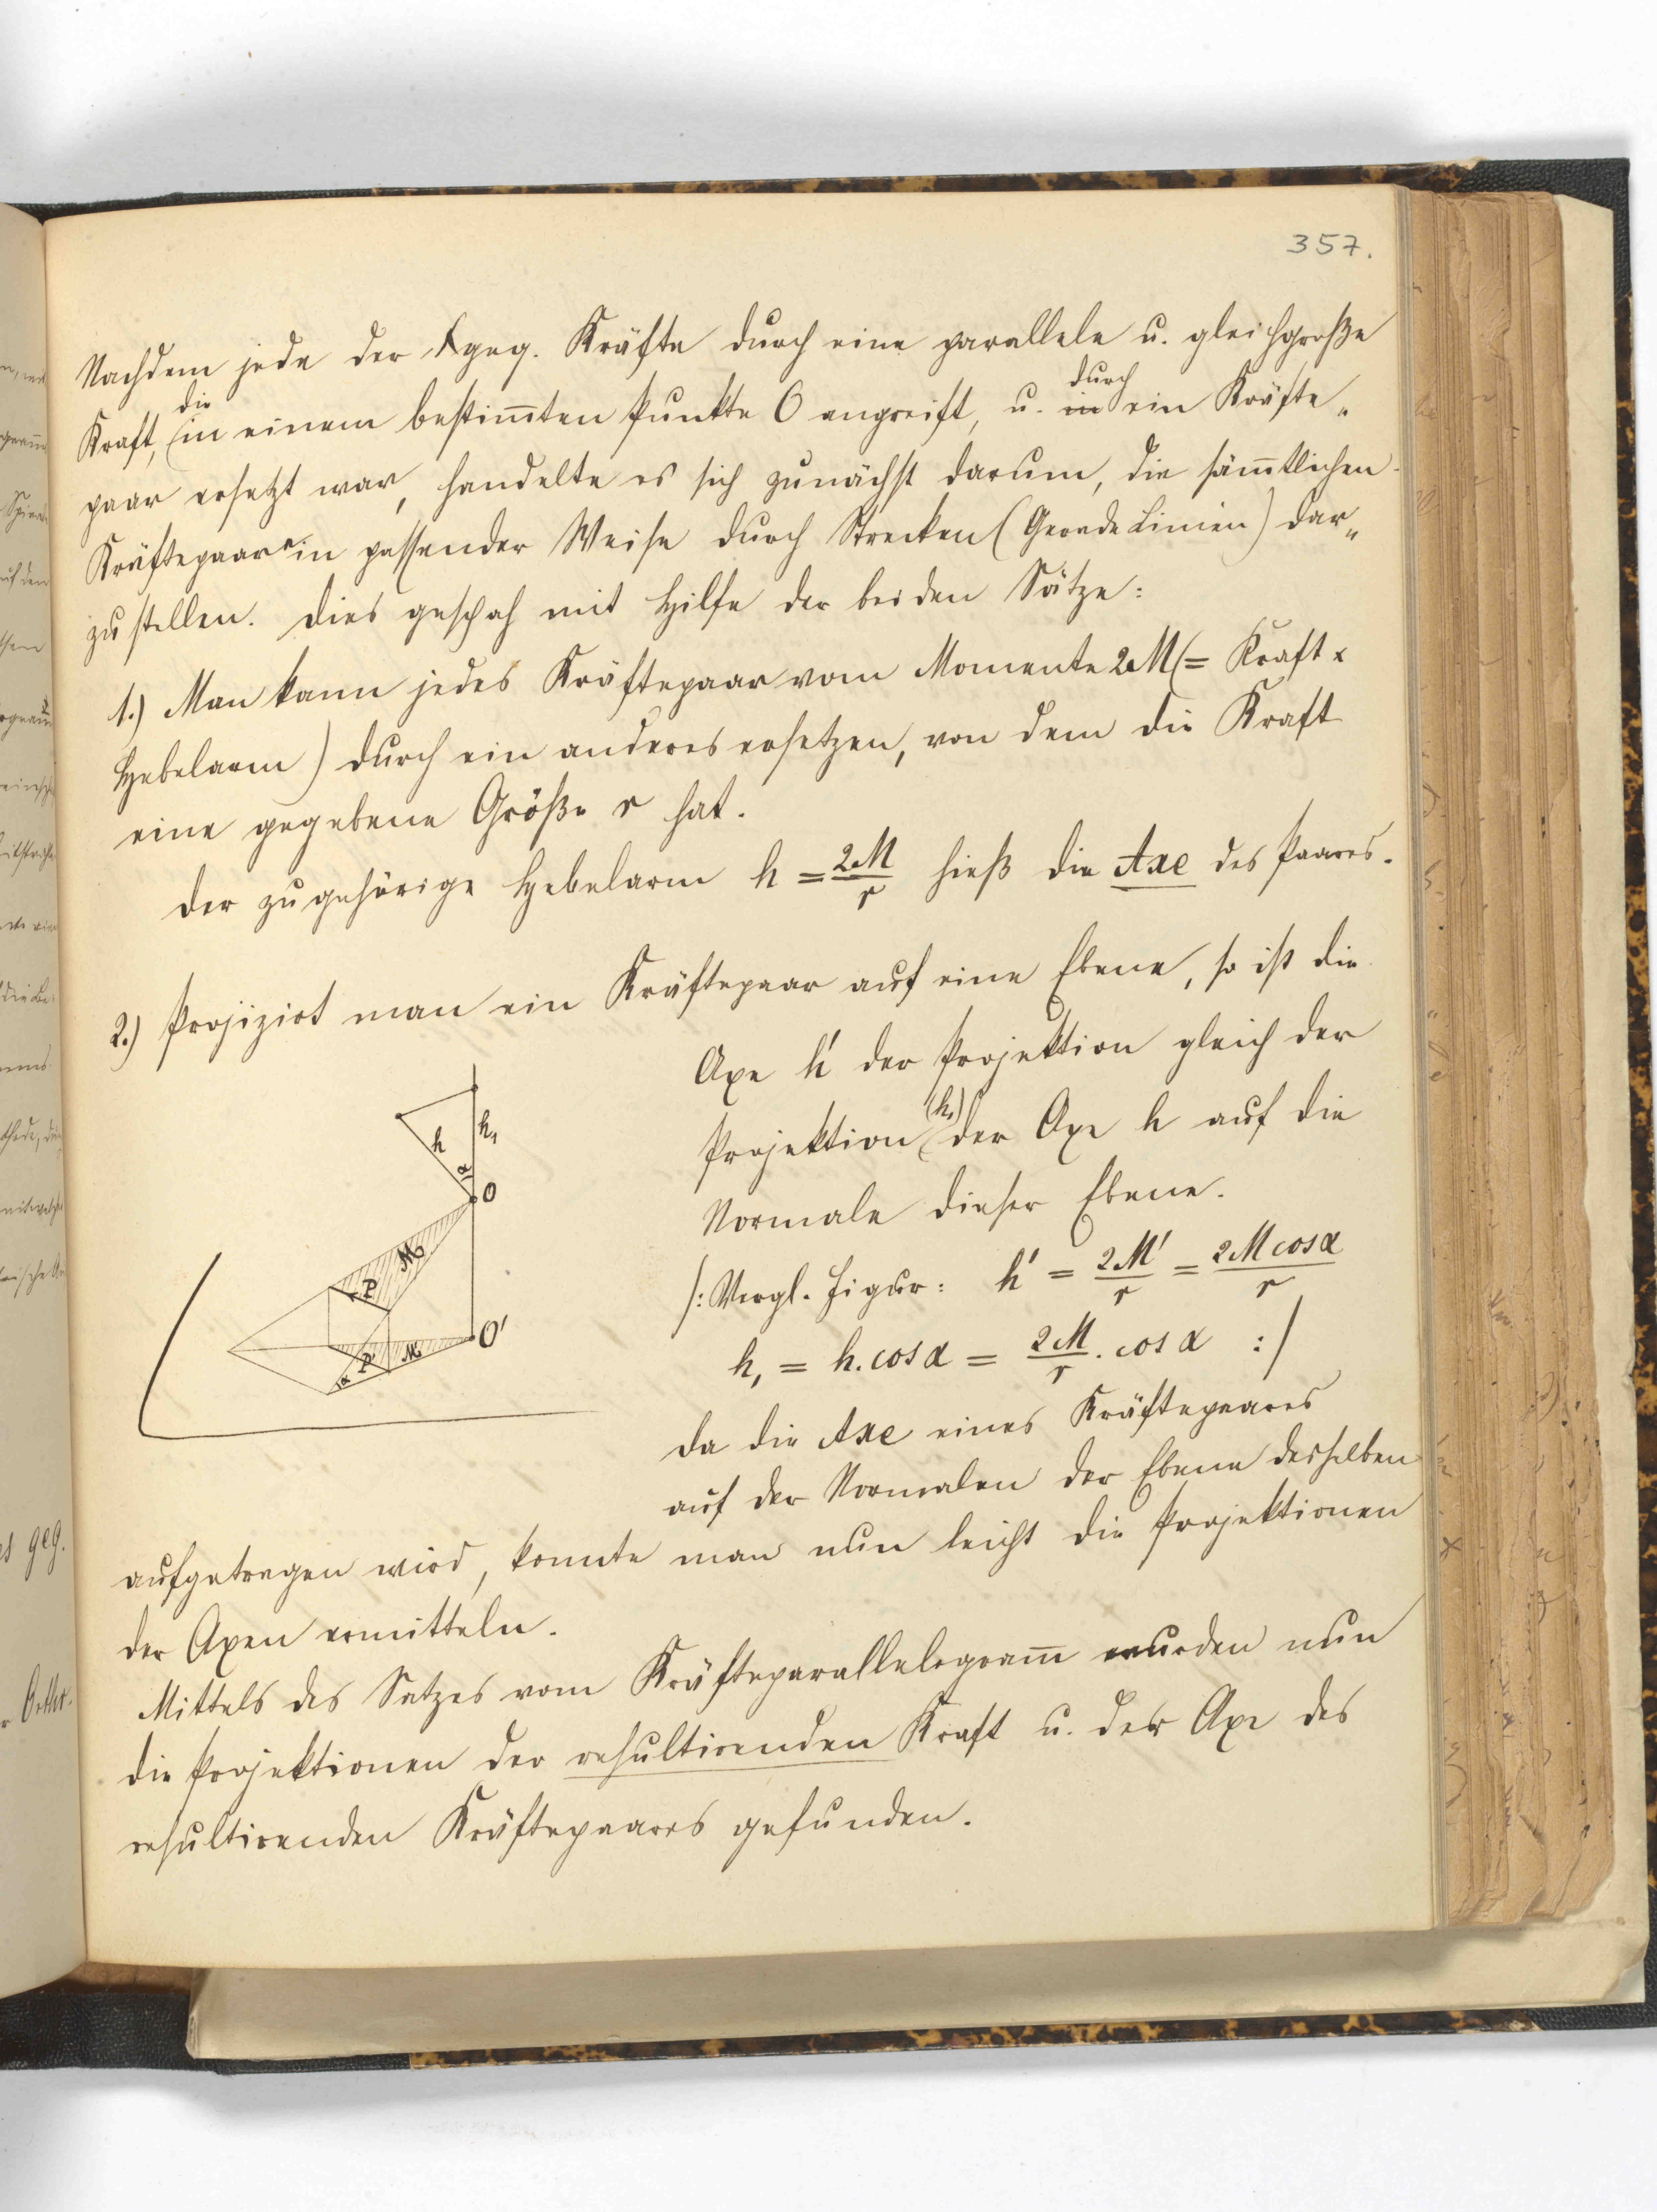 357.
Nachdem jede der geg. Kräfte durch eine parallele u. gleichgroße
Kraft, die in einem bestim̄ten Punkte O angreift, u. durch ein Kräfte„
paar ersetzt war, handelte es sich zunächst darum, die säm̄tlichen
Kräftepaare in passender Weise durch Strecken (Gerade Linien) dar„
zustellen. Dies geschah mit Hilfe der beiden Sätze:
1.) Man kann jedes Kräftepaar vom Momente 2M (= Kraft ×
Hebelarm) durch ein anderes ersetzen, von dem die Kraft
eine gegebene Größe r hat.
Der zugehörige Hebelarm h = 2M/r hieß die Axe des Paares.
2.) Projizirt man ein Kräftepaar auf eine Ebene, so ist die
Axe h' der Projektion gleich der
Projektion (h₁) der Axe h auf die
Normale dieser Ebene.
/: Vergl. Figur: h' = 2M'/r = 2M cos α/r
h₁ = h. cos α = 2M/r . cos α :/
h
h₁
α
O
M
P
O'
P'
M'
α
Da die Axe eines Kräftepaares
auf der Normalen der Ebene desselben
aufgetragen wird, konnte man nun leicht die Projektionen
der Axen ermitteln.
Mittels des Satzes vom Kräfteparallelogram̄ wurden nun
die Projektionen der resultirenden Kraft u. der Axe des
resultirenden Kräftepaares gefunden.
geg.